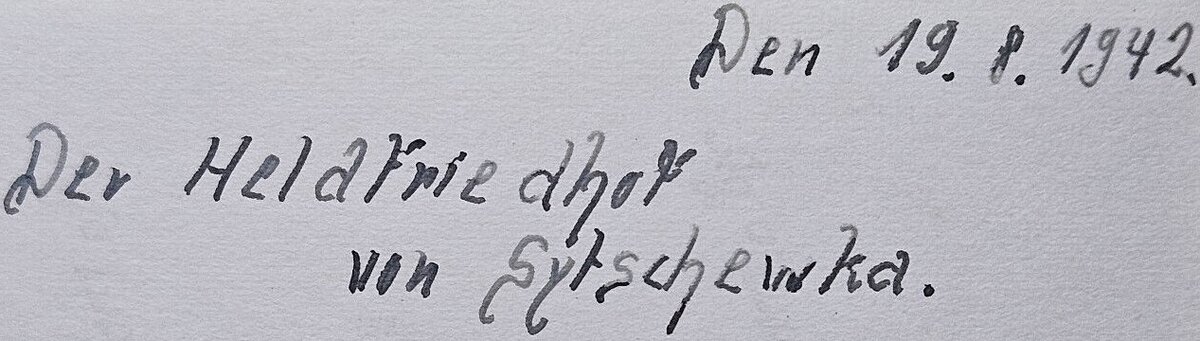 Den 19. 8. 1942.
Der Heldfriedhof
von Sytschewka.